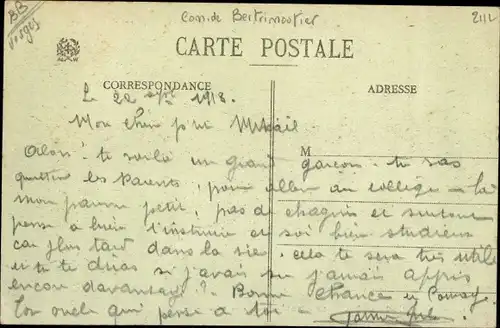 BB
Vosges
Com. de Bertrimoutier
2112
CARTE POSTALE
CORRESPONDANCE
ADRESSE
M
Le 22 sept 1918.
Mon cher p'tit
Alors te voilà un grand garçon. tu vas
quitter les Parents, pour aller au collège - la
mon pauvre petit, pas de chagrin et surtout
pense à bien t'instruire et soi bien studieux
car plus tard dans la vie, cela te sera très utile
et tu te diras si j'avais su j'aurais appris
encore davantage? - Bonne chance et
Ton oncle qui pense à toi -